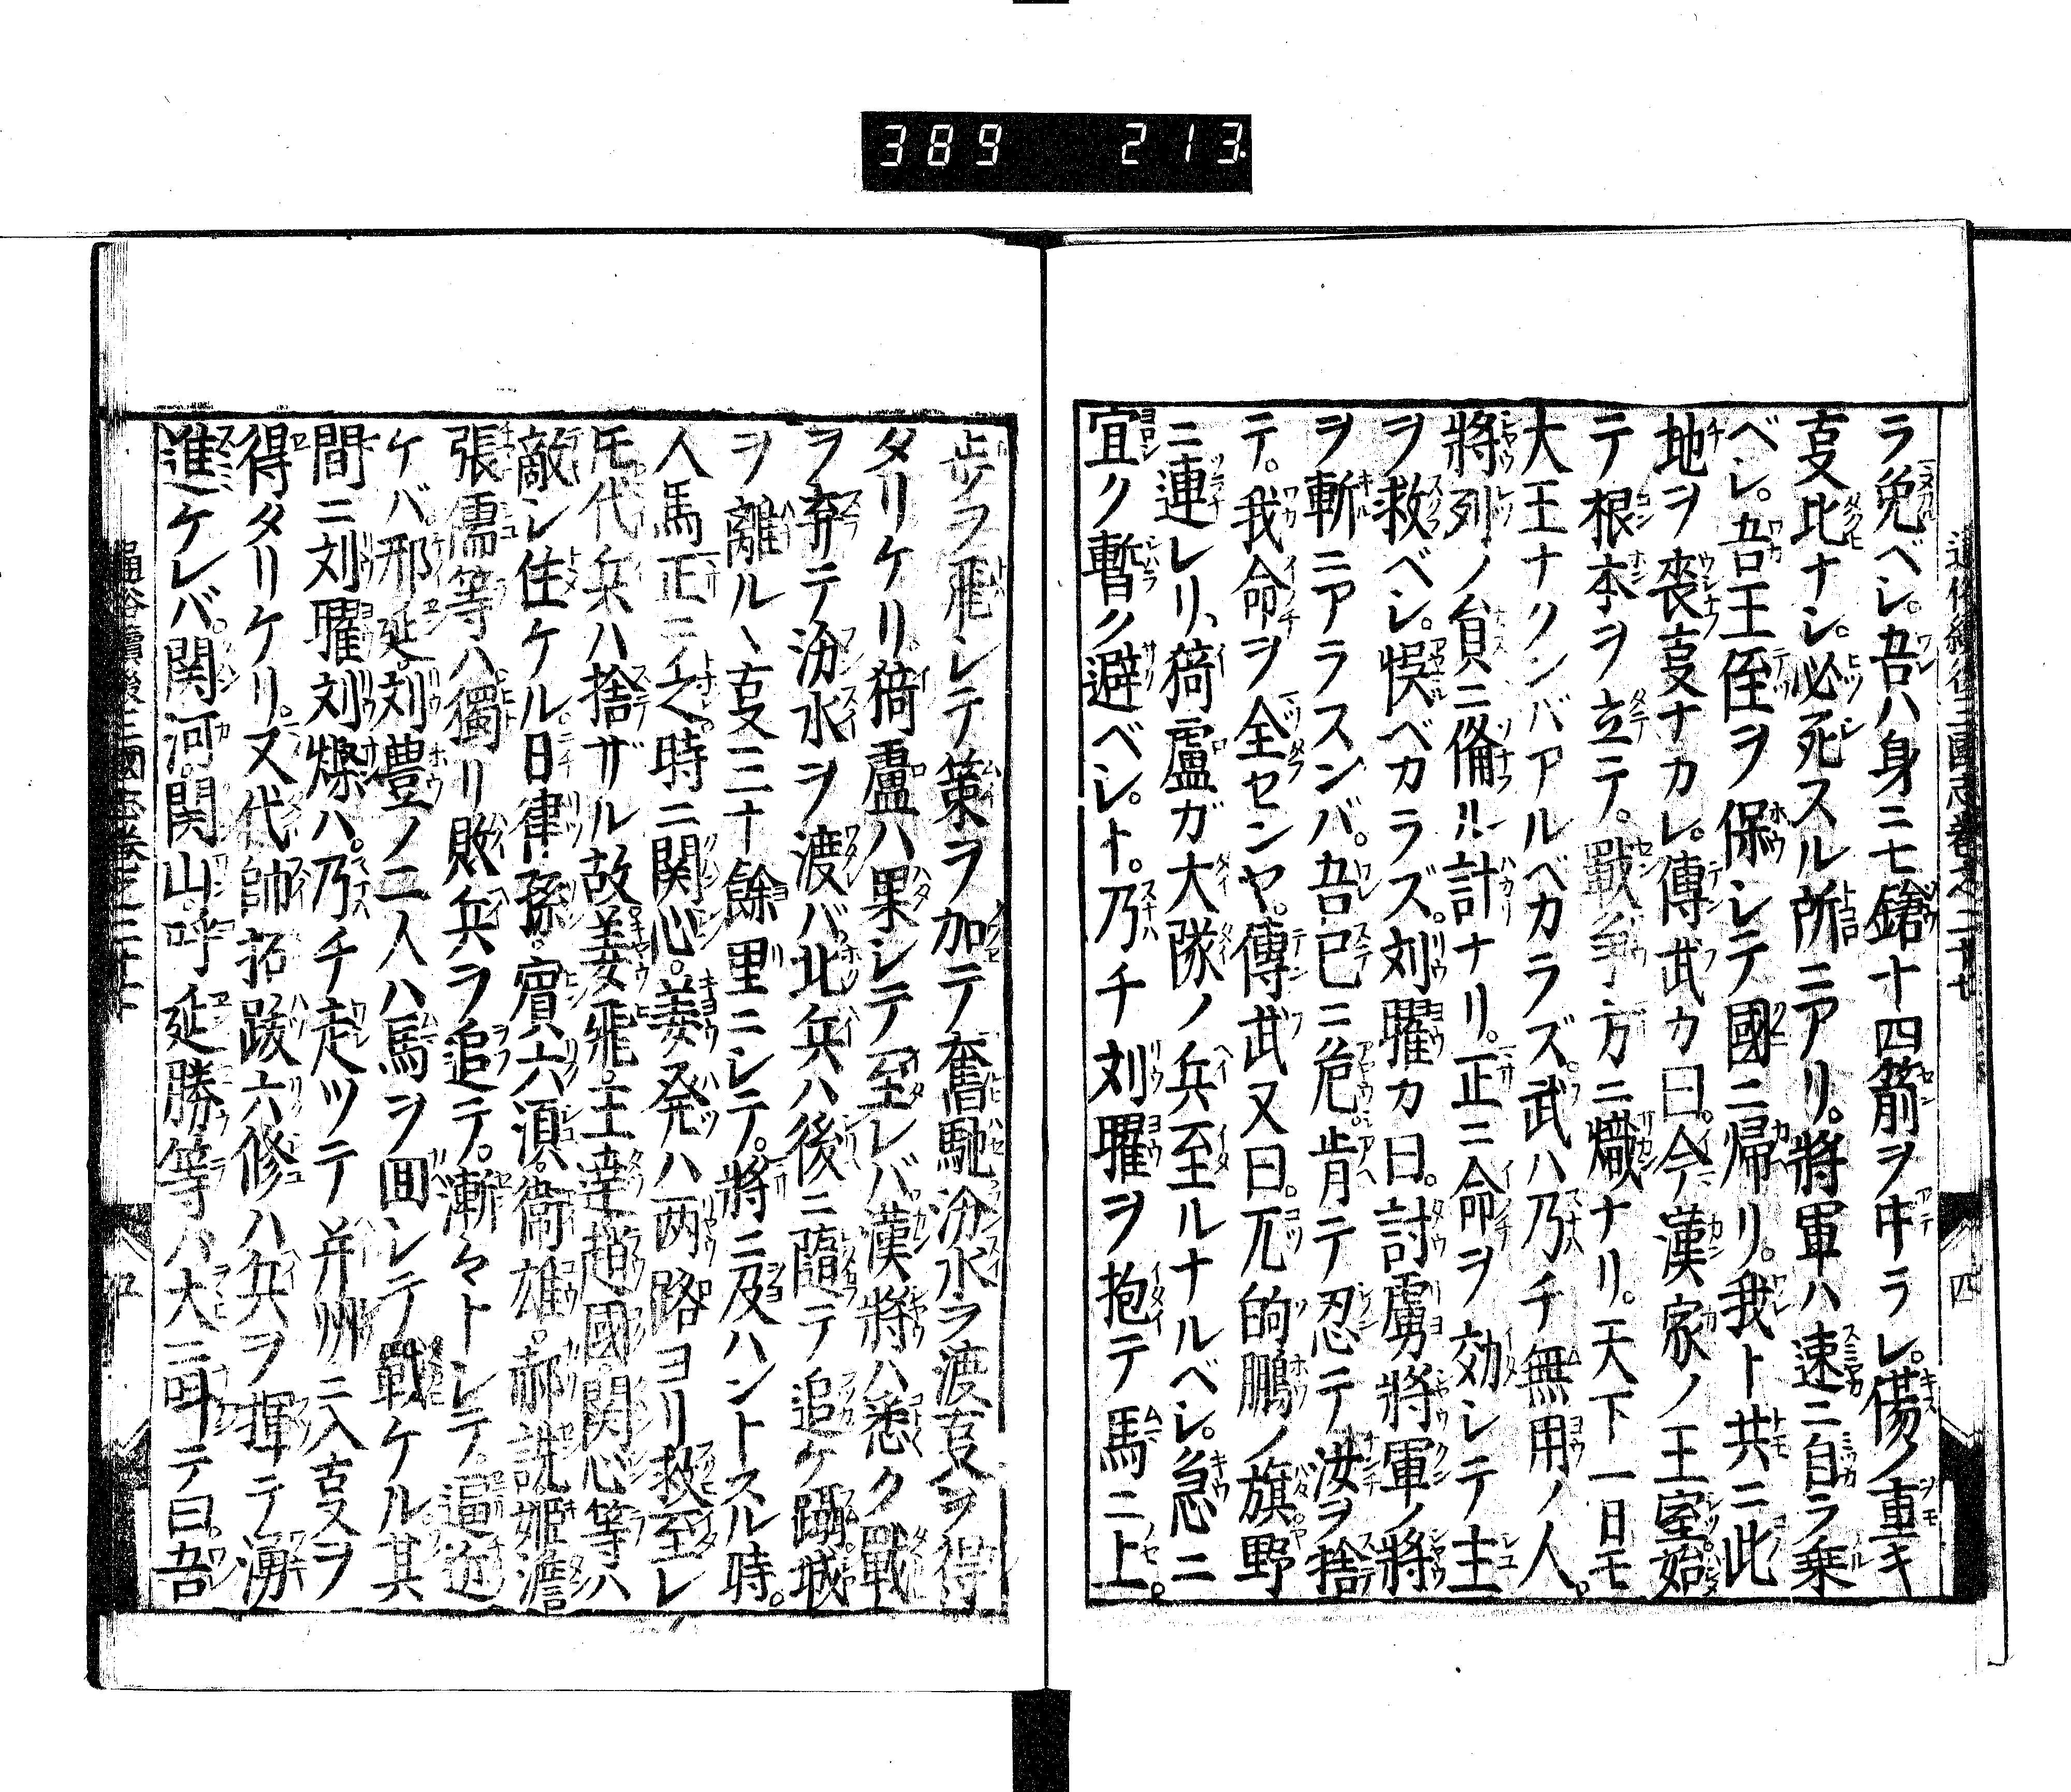 389 213
通俗續後三國志卷之二十七
四
ラ免ベシ。吾ハ身ニ七鎗十四箭ヲ中ラレ。傷ノ重キ
亊比ナシ。必死スル所ニアリ。將軍ハ速ニ自ラ乗
ベシ。吾王侄ヲ保シテ國ニ帰リ。我ト共ニ此
地ヲ喪亊ナカレ。傳武カ曰。今漢家ノ王室始
テ根本ヲ立テ。戰爭方ニ熾ナリ。天下一日モ
大王ナクンバアルベカラズ。武ハ乃チ無用ノ人。
將列ノ貟ニ偹ル計ナリ。正ニ命ヲ効シテ主
ヲ救ベシ。悞ベカラズ。刘曜カ曰。討虜將軍ノ將
ヲ斬ニアラスンバ。吾已ニ危。肯テ忍テ汝ヲ捨
テ。我命ヲ全センヤ。傳武又曰。兀的鵬ノ旗野
ニ連レリ、猗盧ガ大隊ノ兵至ルナルベシ。急ニ
宜ク暫ク避ベシ。ト。乃チ刘曜ヲ抱テ馬ニ上。
歩ヲ飛シテ策ヲ加テ奮馳汾水ヲ渡亊ヲ得
タリケリ。猗盧ハ果シテ至レバ漢將ハ悉ク戰
ヲ弃テ汾水ヲ渡バ。北兵ハ後ニ隨テ追ケ躡。城
ヲ離ルヽ亊三十餘里ニシテ。將ニ及ハントスル時。
人馬正ニ之。時ニ関心。姜発ハ两路ヨリ救至レ
𪜈。代兵ハ捨ザル故。姜飛。王達趙國関心等ハ
敵シ住ケル。日律孫。賓六湏。衞雄。郝詵姫澹
張儒等ハ獨リ敗兵ヲ追テ。漸々トシテ逼近
ケバ。邢延。刘豊ノ二人ハ馬ヲ囬シテ戰ケル。其
間ニ刘曜刘燦ハ。乃チ走ツテ并州ニ入亊ヲ
得タリケリ。又代帥拓跋六修ハ兵ヲ揮テ湧
進ケレバ。関河。関山。呼延勝等ハ大ニ呌テ曰。吾
通俗續後三國志卷之二十七
四